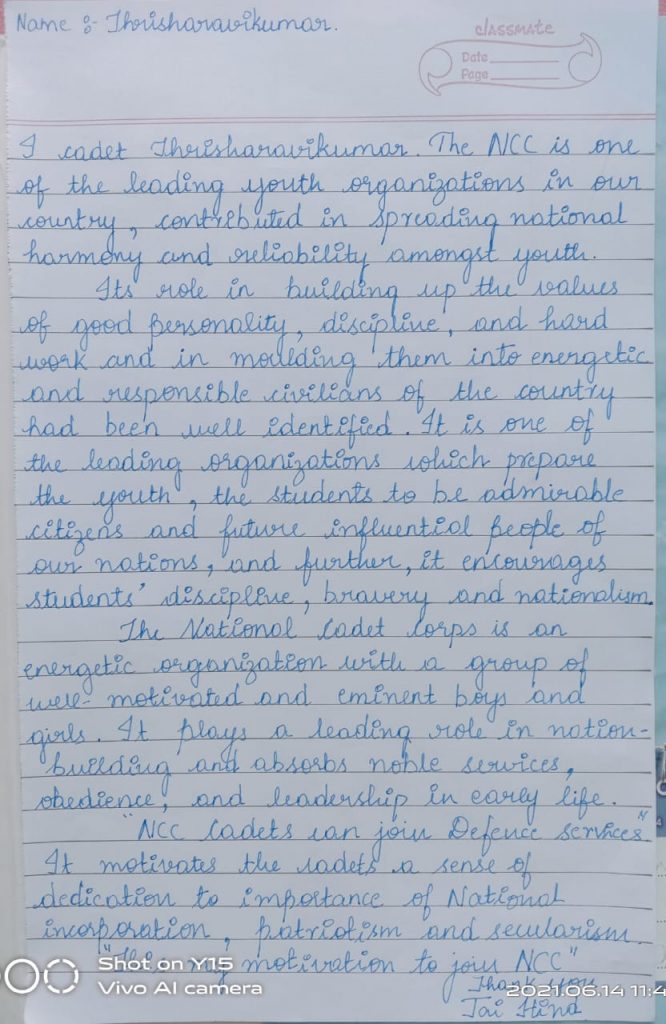 Name :- Thrisharavikumar.
classmate
Date
Page
I cadet Thrisharavikumar. The NCC is one
of the leading youth organizations in our
country, contributed in spreading national
harmony and reliability amongst youth.
Its role in building up the values
of good personality, discipline, and hard
work and in moulding them into energetic
and responsible civilians of the country
had been well identified. It is one of
the leading organizations which prepare
the youth, the students to be admirable
citizens and future influential people of
our nations, and further, it encourages
students' discipline, bravery and nationalism.
The National Cadet Corps is an
energetic organization with a group of
well-motivated and eminent boys and
girls. It plays a leading role in nation-
building and absorbs noble services,
obedience, and leadership in early life.
"NCC Cadets can join Defence services"
It motivates the cadets a sense of
dedication to importance of National
incorporation, patriotism and secularism.
"This my motivation to join NCC"
Thank you
Jai Hind
Shot on Y15
Vivo AI camera
2021.06.14 11:4